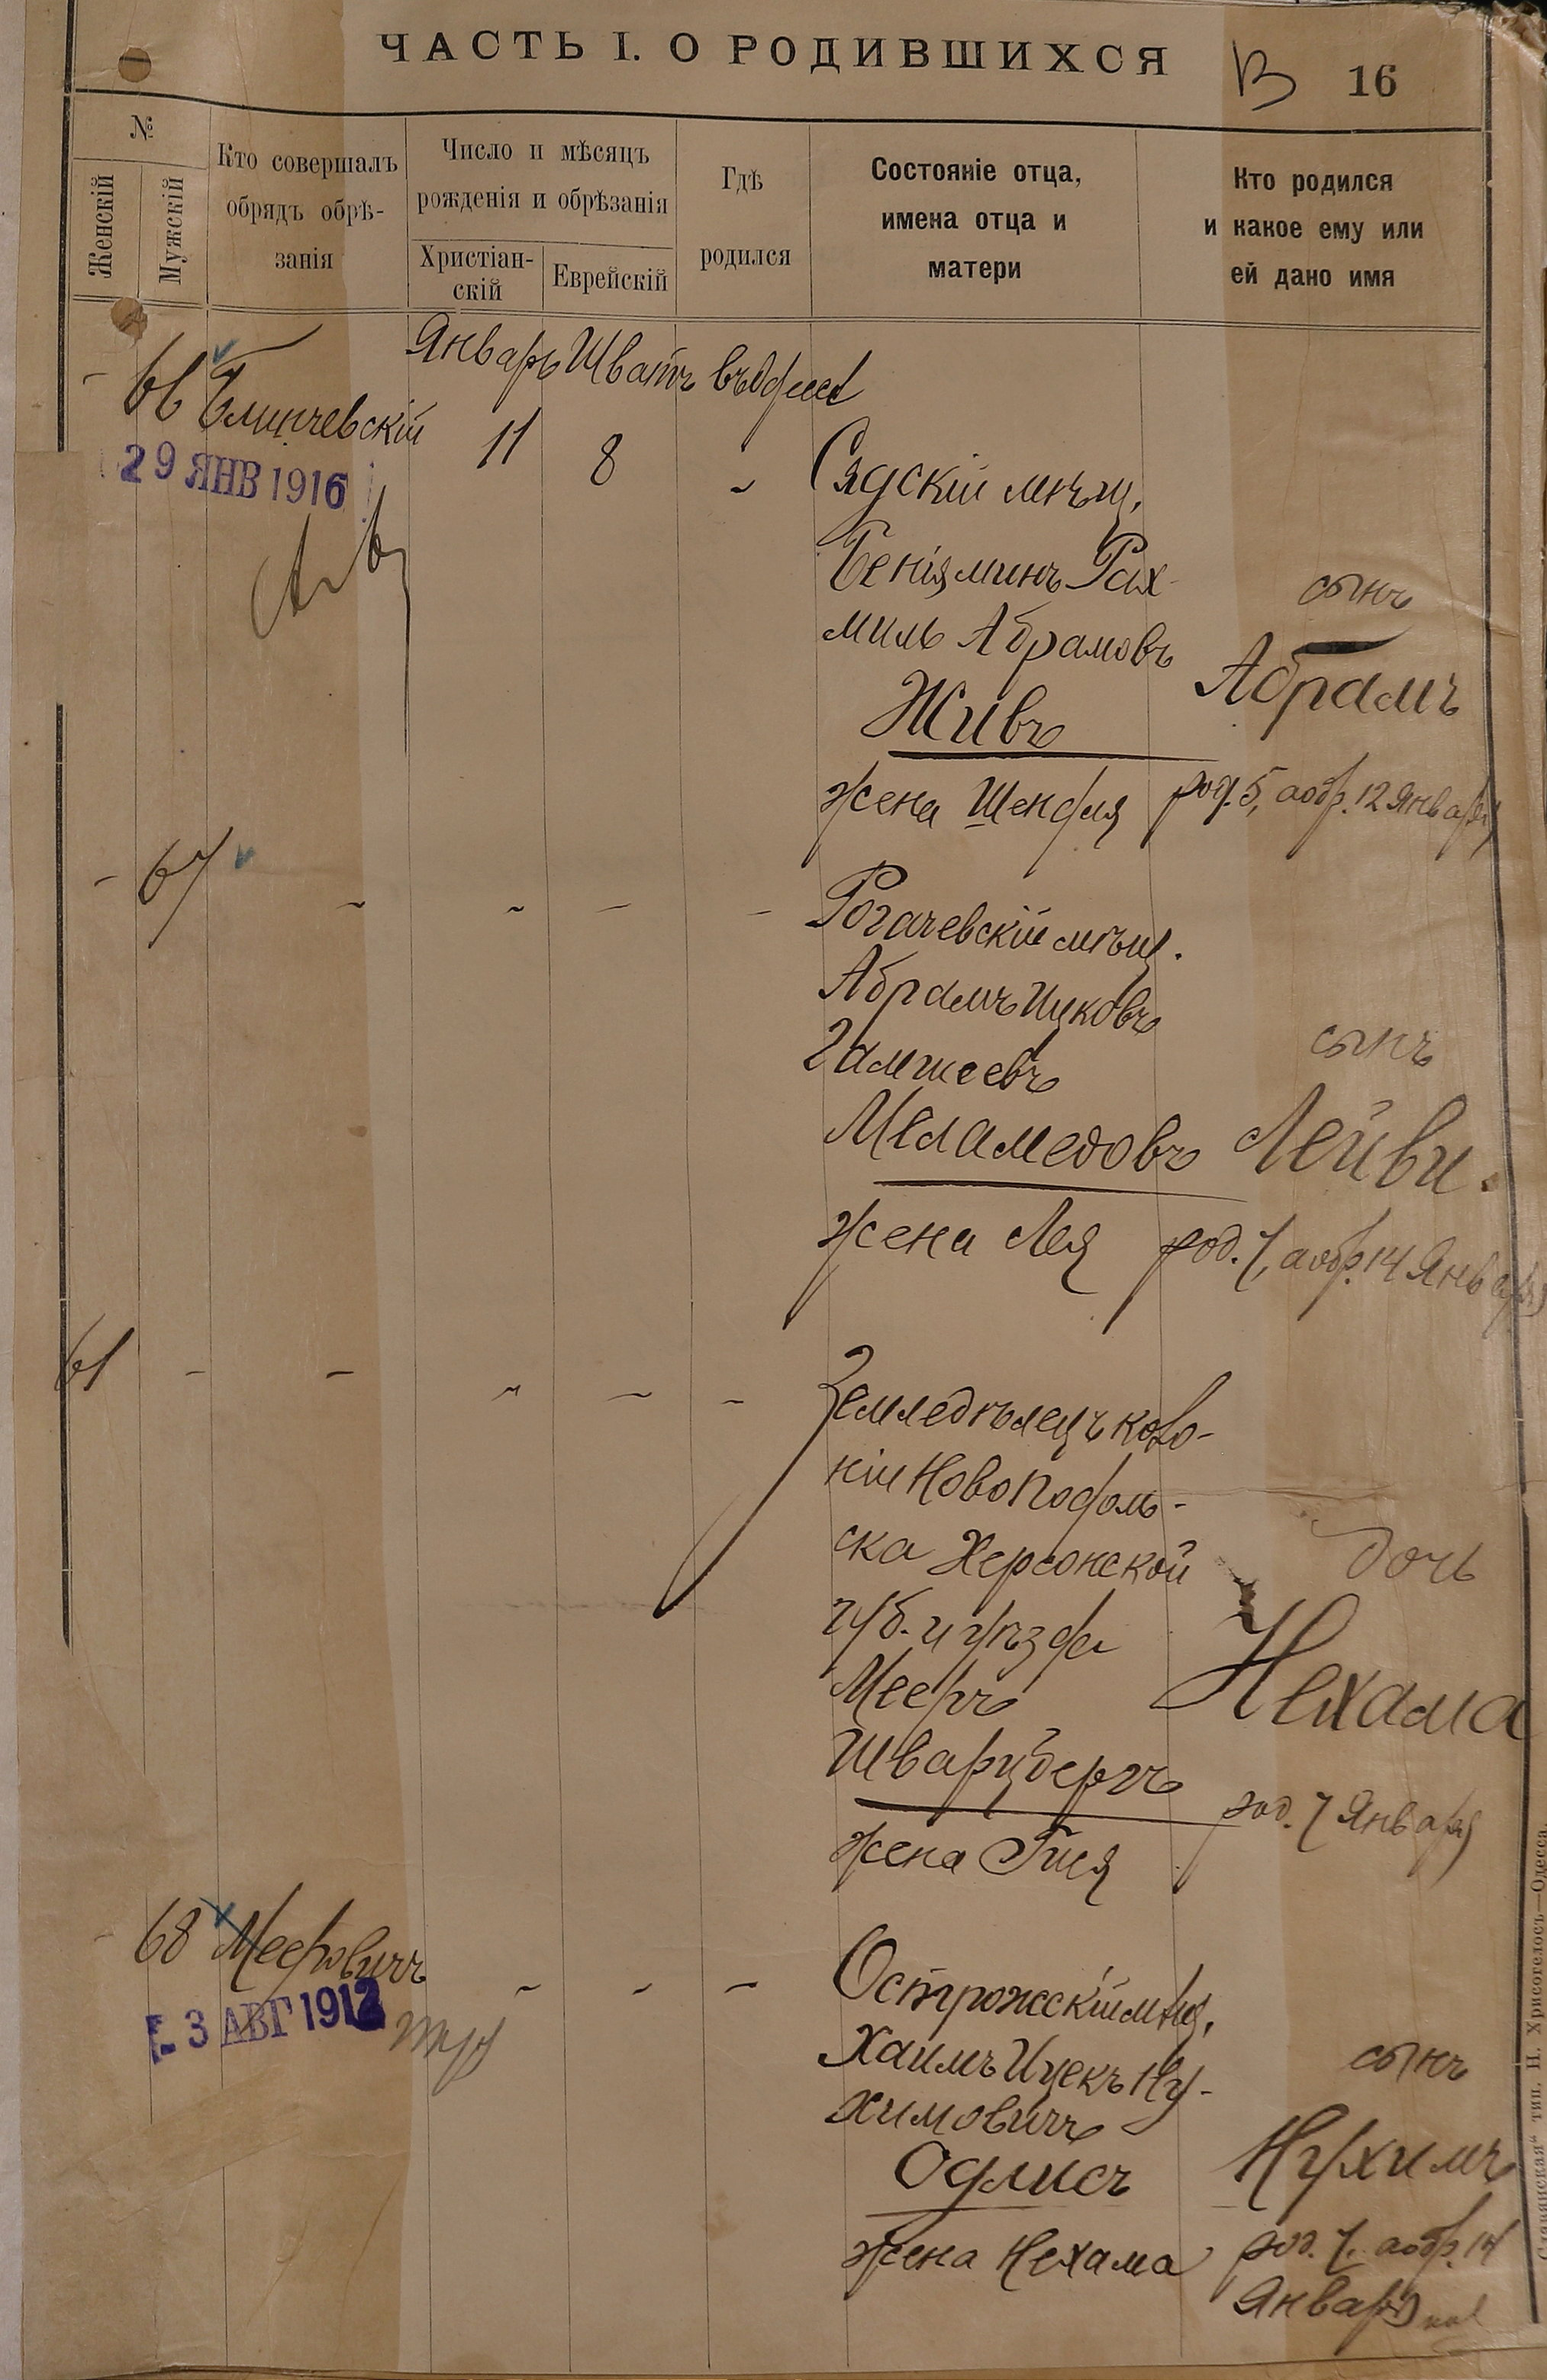 ЧАСТЬ I. О РОДИВШИХСЯ
В 16
№
Женскій
Мужскій
Кто совершалъ
обрядъ обрѣ-
занія
Число и мѣсяцъ
рожденія и обрѣзанія
Христіан-
скій
Еврейскій
Гдѣ
родился
Состояніе отца,
имена отца и
матери
Кто родился
и какое ему или
ей дано имя
Январь Шватъ въ Одессѣ
- 66
11 8 „ Сядскій мѣщ.
29 ЯНВ 1916
Беніяминъ Рах-
миль Абрамовъ
Живъ
жена Шендля
сынъ
Абрамъ
род. 5, а обр. 12 Января
- 67 - - - - Рогачевскій мѣщ.
Абрамъ Ицковъ
Меламедовъ
жена Лея
сынъ
Лейви.
род. 7, а обр. 14 Января
61 - - - - - Земледѣлецъ коло-
ніи Новоподоль-
ска Херсонской
губ. и уѣзда
Мееръ
Шварцбергъ
жена Гися
дочь
Нехама
род. 7 Января
- 68 Мееровичъ - - - Острожскій мѣщ.
3 АВГ 1912
Хаимъ Ицекъ Ну-
химовичъ
Одлисъ
жена Нехама
сынъ
Нухимъ
род. 7, а обр. 14
Января
Славянская“ тип. Н. Хрисогелосъ—Одесса.